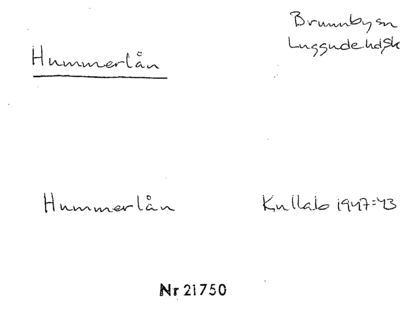 Hummerlån
Brunnby sn
Luggude hdsk
Hummerlån
Kullab 1947:43
Nr 21750